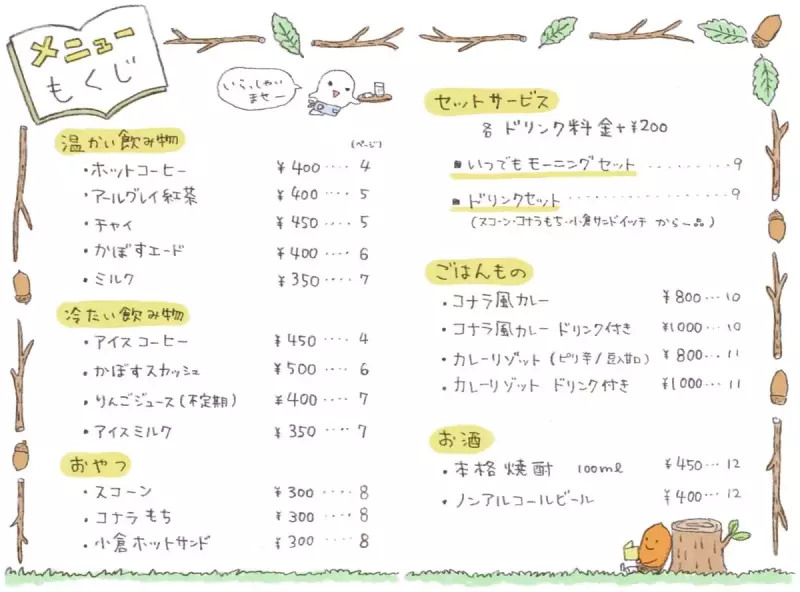 メニュー
もくじ
いらっしゃい
ませー
温かい飲み物 (ページ)
・ホットコーヒー ¥400････4
・アールグレイ紅茶 ¥400････5
・チャイ ¥450････5
・かぼすエード ¥400････6
・ミルク ¥350････7
冷たい飲み物
・アイスコーヒー ¥450････4
・かぼすスカッシュ ¥500････6
・りんごジュース(不定期) ¥400････7
・アイスミルク ¥350････7
おやつ
・スコーン ¥300････8
・コナラもち ¥300････8
・小倉ホットサンド ¥300････8
セットサービス
各ドリンク料金+¥200
■いつでもモーニングセット ･････････9
■ドリンクセット ･････････9
(スコーン・コナラもち・小倉サンドイッチ から一品)
ごはんもの
・コナラ風カレー ¥800･･･10
・コナラ風カレー ドリンク付き ¥1000･･･10
・カレーリゾット(ピリ辛/豆入甘口) ¥800･･･11
・カレーリゾット ドリンク付き ¥1000･･･11
お酒
・本格焼酎 100ml ¥450･･･12
・ノンアルコールビール ¥400･･･12